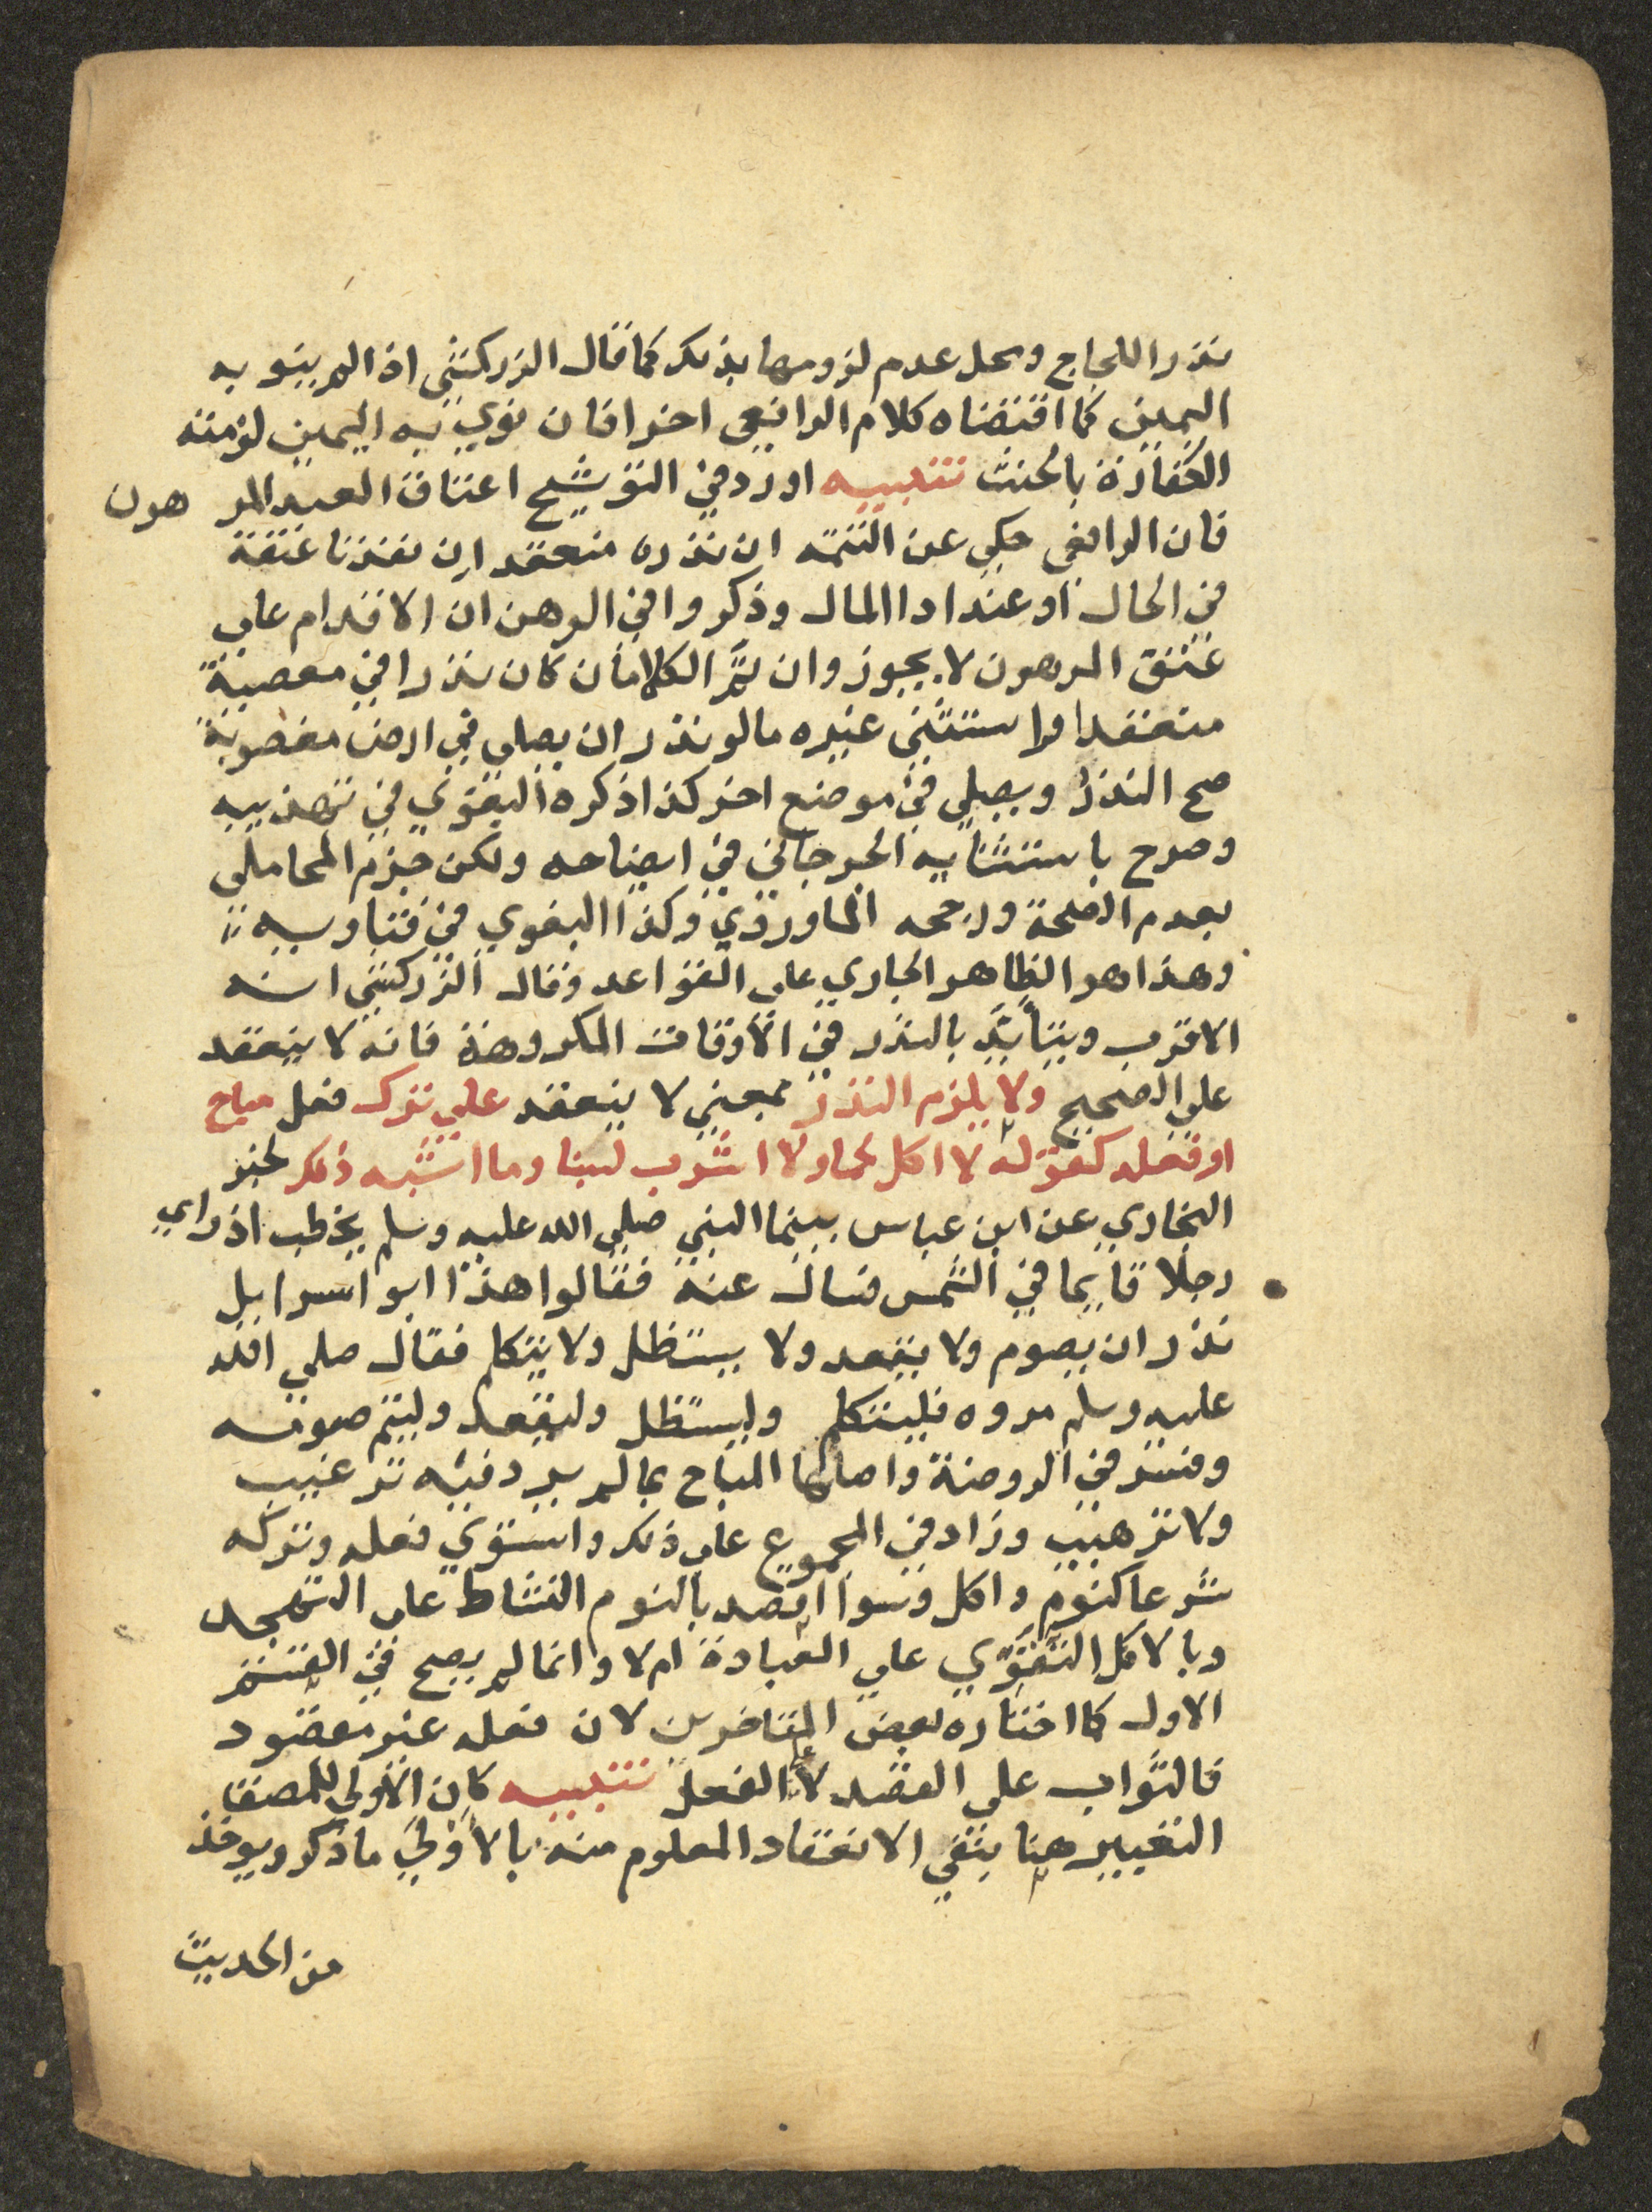 نذر اللجاج ومحل عدم لزومها بذلك كما قال الزركشي اذا لم ينو به
اليمين كما اقتضاه كلام الرافعي اخرا فان نوي به اليمين لزمته
الكفارة بالحنث تنبيه اورد في التوشيح اعتاق العبد المرهون
فان الرافعي حكي عن التتمة ان نذره منعقد ان نفذنا عتقه
في الحال او عند ادا المال وذكروا في الرهن ان الاقدام علي
عتق المرهون لا يجوز وان تم الكلامان كان نذرا في معصية
منعقدا واستثني غيره ما لو نذر ان يصلي في ارض مغصوبة
صح النذر ويصلي في موضع اخر كذا ذكره البغوي في تهذيبه
وصرح باستثنايه الجرجاني في ايضاحه ولكن جزم المحاملي
بعدم الصحة ورجحه الماوردي وكذا البغوي في فتاويه
وهذا هو الظاهر الجاري علي القواعد وقال الزركشي انه
الاقرب ويتأيد بالنذر في الاوقات المكروهة فانه لا ينعقد
علي الصحيح ولا يلزم النذر بمعني لا ينعقد علي ترك فعل مباح
او فعله كقوله لا اكل لحما ولا اشرب لبنا وما اشبه ذلك لخبر
البخاري عن ابن عباس بينما النبي صلي الله عليه وسلم يخطب اذ راي
رجلا قايما في الشمس فسال عنه فقالوا هذا ابو اسرايل
نذر ان يصوم ولا يقعد ولا يستظل ولا يتكلم فقال صلي الله
عليه وسلم مروه فليتكلم وليستظل وليقعد وليتم صومه
وفسر في الروضة واصلها المباح بما لم يرد فيه ترغيب
ولا ترهيب وزاد في المجموع علي ذلك واستوي فعله وتركه
شرعا كنوم واكل وسوا اقصد بالنوم النشاط علي التهجد
وبالاكل التقوّي علي العبادة ام لا وانما لم يصح في القسم
الاول كما اختاره بعض المتاخرين لان فعله غير مقصود
فالثواب علي القصد لا الفعل تنبيه كان الاولي للمصنف
التعبير هنا بنفي الانعقاد المعلوم منه بالاولي ما ذكر ويوخذ
من الحديث